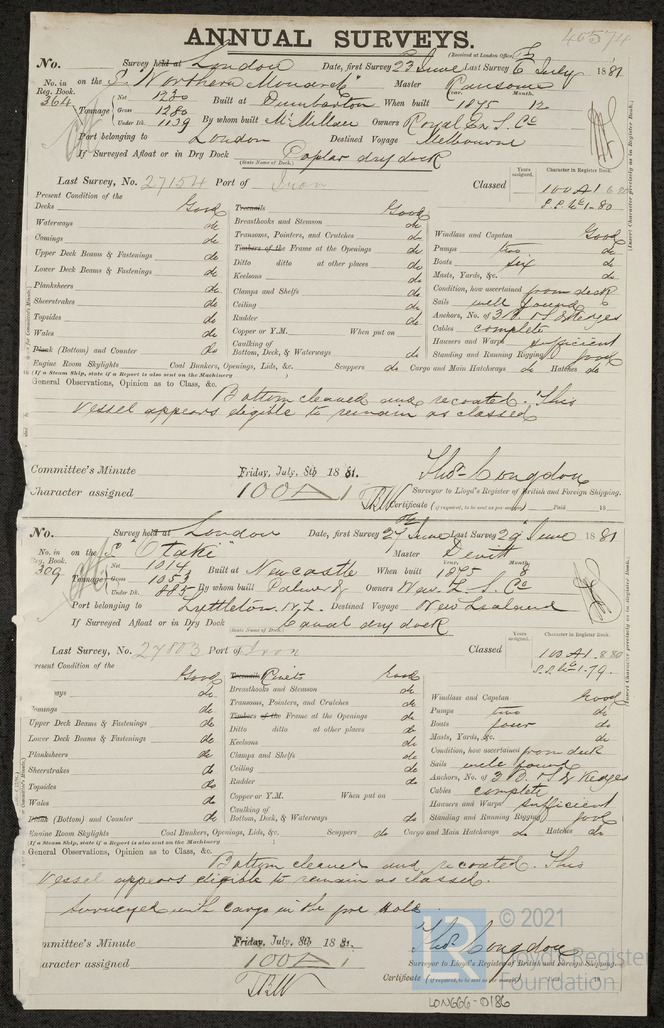 ANNUAL SURVEYS.
(Received at London Office,
40574
No. Survey held at London Date, first Survey 23 June Last Survey 6 July 1881
No. in Reg. Book. on the S "Northern Monarch" Master Ransome
364 Tonnage Net 1230 Gross 1280 Under Dk. 1139 Built at Dumbarton When built Year. 1875 Month. 12
By whom built McMillan Owners Royal Ex. S. Co
Port belonging to London Destined Voyage Melbourne
If Surveyed Afloat or in Dry Dock Poplar dry dock
(State Name of Dock.)
Last Survey, No. 27154 Port of Iron Classed Years assigned. Character in Register Book.
100 A1
S.S. No 1-80
(Insert Character precisely as in Register Book.)
Present Condition of the
Decks Good
Waterways do
Comings do
Upper Deck Beams & Fastenings do
Lower Deck Beams & Fastenings do
Planksheers do
Sheerstrakes do
Topsides do
Wales do
Plank (Bottom) and Counter do
Treenails Good
Breasthooks and Stemson do
Transoms, Pointers, and Crutches do
Timbers of the Frame at the Openings do
Ditto ditto at other places do
Keelsons do
Clamps and Shelfs do
Ceiling do
Rudder do
Copper or Y.M. When put on
Caulking of Bottom, Deck, & Waterways do
Windlass and Capstan Good
Pumps two do
Boats six do
Masts, Yards, &c. do
Condition, how ascertained from deck
Sails well found
Anchors, No. of 3 B. 1 S. & 2 Kedges
Cables complete
Hawsers and Warps sufficient
Standing and Running Rigging good
Engine Room Skylights Coal Bunkers, Openings, Lids, &c. Scuppers do Cargo and Main Hatchways do Hatches do
(If a Steam Ship, state if a Report is also sent on the Machinery
General Observations, Opinion as to Class, &c.
Bottom cleaned and recoated. This
vessel appears eligible to remain as classed
Committee's Minute Friday, July, 8th 1881.
Thos. Congdon
Surveyor to Lloyd's Register of British and Foreign Shipping.
Character assigned 100 A 1
Certificate (if required, to be sent as per margin) Paid 18
No. Survey held at London Date, first Survey 27 June Last Survey 29 June 1881
No. in Reg. Book. on the S "Otaki" Master Devitt
309 Tonnage Net 1014 Gross 1053 Under Dk. 885 Built at Newcastle When built Year. 1875 Month. 8
By whom built Palmer & Owners New. Z. S. Co
Port belonging to Lyttleton N.Z. Destined Voyage New Zealand
If Surveyed Afloat or in Dry Dock Canal dry dock
(State Name of Dock.)
Last Survey, No. 27803 Port of Iron Classed Years assigned. Character in Register Book.
100 A1 8.80
S.S. No 1-79.
(Insert Character precisely as in Register Book.)
resent Condition of the
Good
ays do
omings do
Upper Deck Beams & Fastenings do
Lower Deck Beams & Fastenings do
Planksheers do
Sheerstrakes do
Topsides do
Wales do
Plank (Bottom) and Counter do
Treenails Rivets Good
Breasthooks and Stemson do
Transoms, Pointers, and Crutches do
Timbers of the Frame at the Openings do
Ditto ditto at other places do
Keelsons do
Clamps and Shelfs do
Ceiling do
Rudder do
Copper or Y.M. When put on
Caulking of Bottom, Deck, & Waterways do
Windlass and Capstan Good
Pumps two do
Boats four do
Masts, Yards, &c. do
Condition, how ascertained from deck
Sails well found
Anchors, No. of 3 B. 1 S. & 2 Kedges
Cables complete
Hawsers and Warps sufficient
Standing and Running Rigging good
Engine Room Skylights Coal Bunkers, Openings, Lids, &c. Scuppers do Cargo and Main Hatchways do Hatches do
(If a Steam Ship, state if a Report is also sent on the Machinery
General Observations, Opinion as to Class, &c.
Bottom cleaned and recoated. This
vessel appears eligible to remain as classed.
Surveyed with cargo in the fore hold
mmittee's Minute Friday, July, 8th 1881.
Thos. Congdon
Surveyor to Lloyd's Register of British and Foreign Shipping.
aracter assigned 100 A 1
Certificate (if required, to be sent as per margin)
LON666-0186
LR © 2021
Lloyd's Register
Foundation